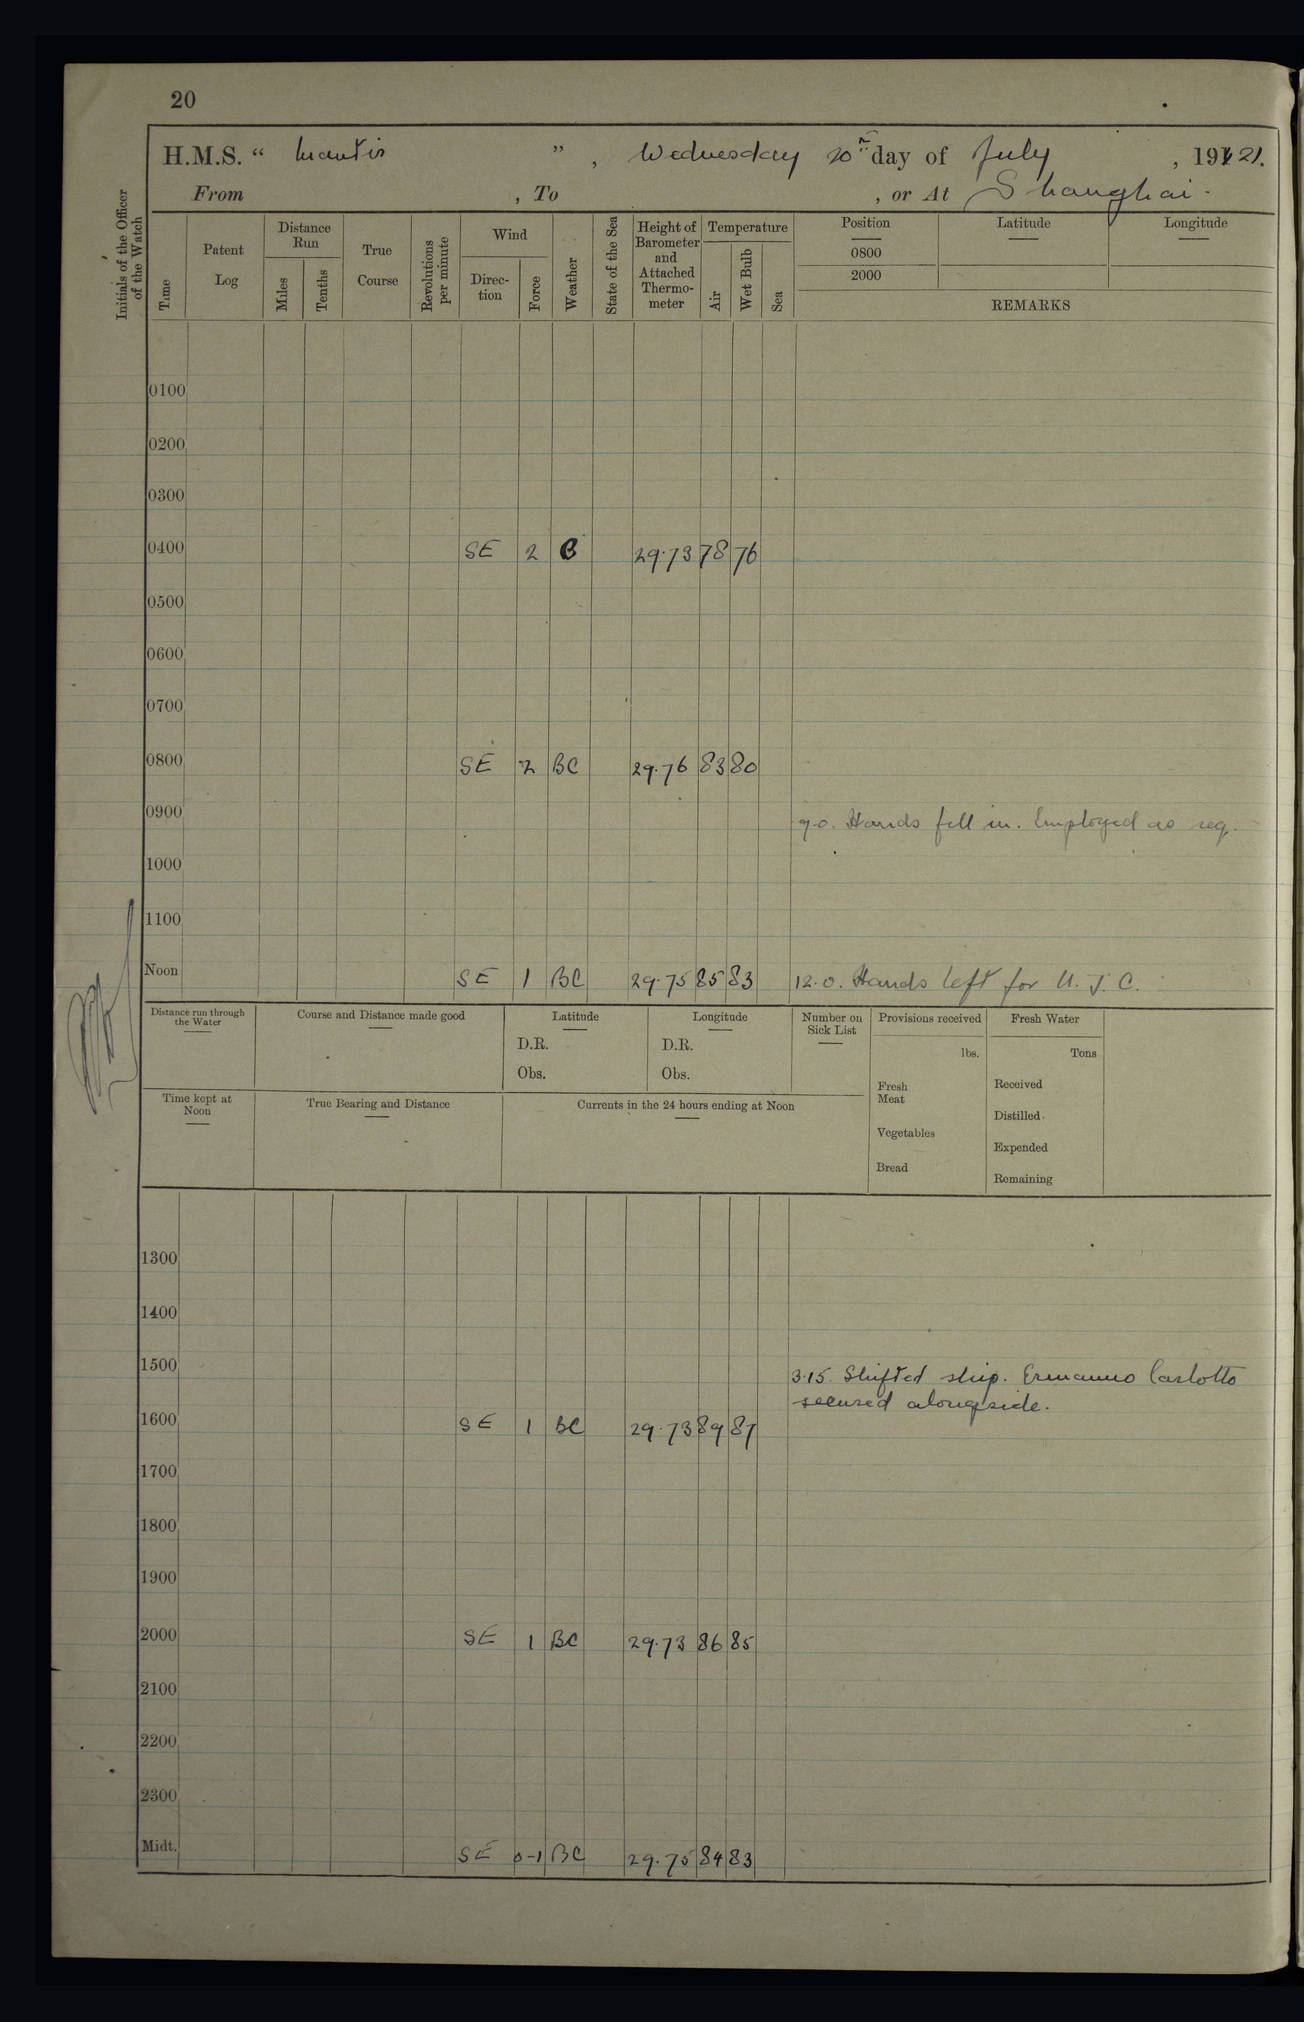 20
H.M.S. " Mantis " , Wednesday 20th day of July , 1921.
From , To , or At Shanghai.
Initials of the Officer of the Watch
Time
Patent Log
Distance Run
Miles
Tenths
True Course
Revolutions per minute
Wind
Direction
Force
Weather
State of the Sea
Height of Barometer and Attached Thermometer
Temperature
Air
Wet Bulb
Sea
Position Latitude Longitude
0800
2000
REMARKS
0100
0200
0300
0400 SE 2 B 29.73 78 76
0500
0600
0700
0800 SE 2 BC 29.76 83 80
0900 9.0. Hands fell in. Employed as req.
1000
1100
Noon SE 1 BC 29.75 85 83 12.0. Hands left for U. J. C.
Distance run through the Water
Course and Distance made good
Latitude
D.R.
Obs.
Longitude
D.R.
Obs.
Number on Sick List
Provisions received
lbs.
Fresh Meat
Vegetables
Bread
Fresh Water
Tons
Received
Distilled
Expended
Remaining
Time kept at Noon
True Bearing and Distance
Currents in the 24 hours ending at Noon
1300
1400
1500 3.15. Shifted ship. Ermanno Carlotto
secured alongside.
1600 SE 1 BC 29.73 89 87
1700
1800
1900
2000 SE 1 BC 29.73 86 85
2100
2200
2300
Midt. SE 0-1 BC 29.75 84 83